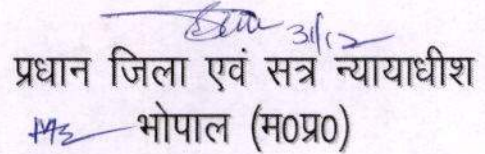 31/12
प्रधान जिला एवं सत्र न्यायाधीश
भोपाल (म0प्र0)